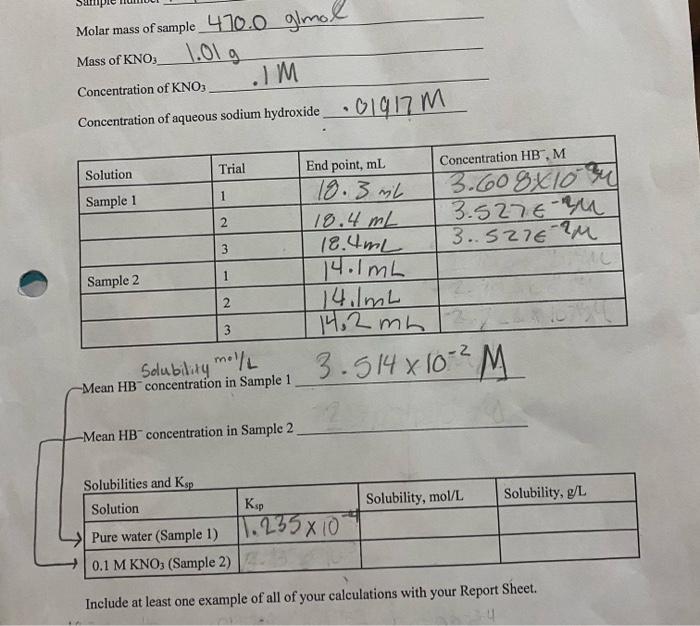 Molar mass of sample 470.0 g/mol
Mass of KNO₃ 1.01 g
Concentration of KNO₃ .1 M
Concentration of aqueous sodium hydroxide .01917 M
Solution Trial End point, mL Concentration HB⁻, M
Sample 1 1 18.3 mL 3.608X10
2 18.4 mL 3.527E
3 18.4mL 3..527E
Sample 2 1 14.1mL
2 14.1mL
3 14.2 mL
Solubility mol/L
Mean HB⁻ concentration in Sample 1 3.514 x 10⁻² M
Mean HB⁻ concentration in Sample 2
Solubilities and Ksp
Solution Ksp Solubility, mol/L Solubility, g/L
Pure water (Sample 1) 1.235 x 10
0.1 M KNO₃ (Sample 2)
Include at least one example of all of your calculations with your Report Sheet.